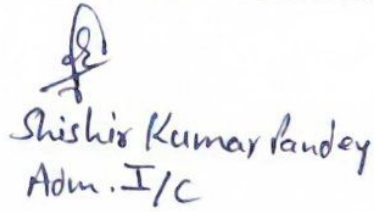 Shishir Kumar Pandey
Adm. I/C